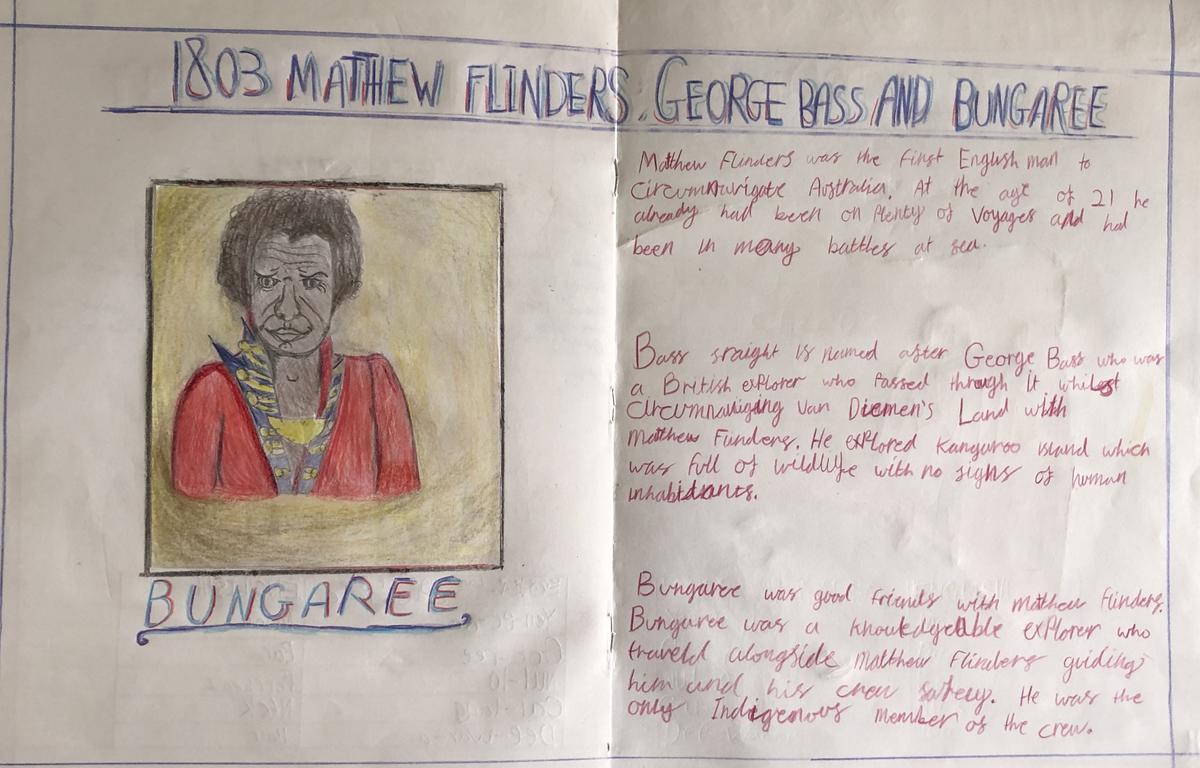 1803 MATTHEW FLINDERS, GEORGE BASS AND BUNGAREE
BUNGAREE
Matthew Flinders was the first English man to
circumnavigate Australia. At the age of 21 he
already had been on plenty of voyages and had
been in many battles at sea.
Bass sraight is named after George Bass who was
a British explorer who passed through it whilest
circumnaviging Van Diemen's Land with
Matthew Funders. He explored Kangaroo island which
was full of wildlife with no signs of human
inhabidants.
Bungaree was good friends with Matthew Flinders.
Bungaree was a knowledgeable explorer who
traveld alongside Matthew Flinders guiding
him and his crew safely. He was the
only Indigenous member of the crew.